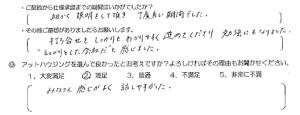 ・ご契約から仕様決定までの期間はいかがでしたか？
細かく説明をして頂き 丁度良い期間でした。
・その他ご感想がありましたらお願いします。
打ち合せを しっかりと わかりやすく 進めてくださり 勉強にもなりました。
"しっかりとした会社だ"と感じました。
◎ アットハウジングを選んで良かったとお考えですか？よろしければその理由もお聞かせください。
1，大変満足 ②満足 3，普通 4，不満足 5，非常に不満
みなさん 感じがよく 話しやすかった。